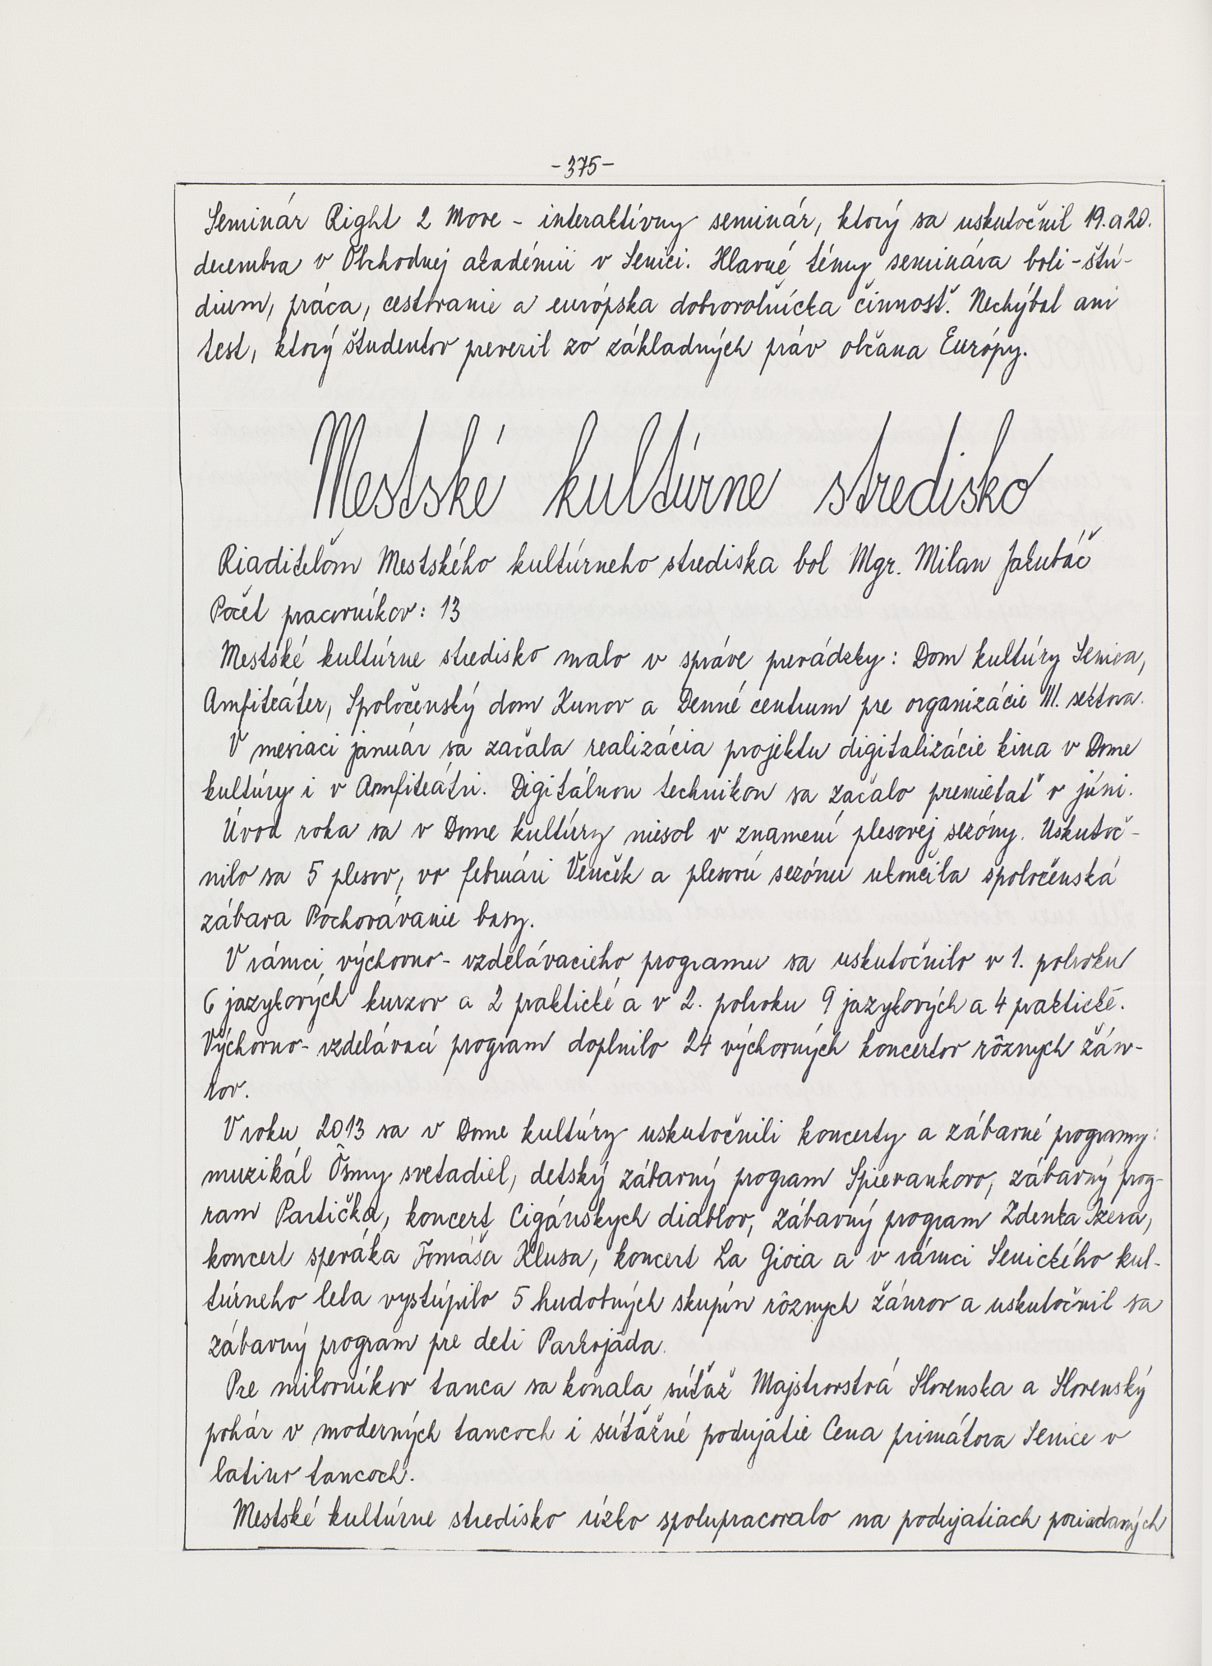 -375-
Seminár Right 2 Move - interaktívny seminár, ktorý sa uskutočnil 19. a 20.
decembra v Obchodnej akadémii v Senici. Hlavné témy seminára boli - štú-
dium, práca, cestovanie a európska dobrovoľnícka činnosť. Nechýbal ani
test, ktorý študentov preveril zo základných práv občana Európy.
Mestské kultúrne stredisko
Riaditeľom Mestského kultúrneho strediska bol Mgr. Milan Jakubáč
Počet pracovníkov: 13
Mestské kultúrne stredisko malo v správe prevádzky: Dom kultúry Senica,
Amfiteáter, Spoločenský dom Kunov a Denné centrum pre organizácie III. sektora.
V mesiaci január sa začala realizácia projektu digitalizácie kina v Dome
kultúry i v Amfiteátri. Digitálnou technikou sa začalo premietať v júni.
Úvod roka sa v Dome kultúry niesol v znamení plesovej sezóny. Uskutoč-
nilo sa 5 plesov, vo februári Venček a plesovú sezónu ukončila spoločenská
zábava Pochovávanie basy.
V rámci výchovno-vzdelávacieho programu sa uskutočnilo v 1. polroku
6 jazykových kurzov a 2 praktické a v 2. polroku 9 jazykových a 4 praktické.
Výchovno-vzdelávací program doplnilo 24 výchovných koncertov rôznych žán-
rov.
V roku 2013 sa v Dome kultúry uskutočnili koncerty a zábavné programy:
muzikál Ôsmy svetadiel, detský zábavný program Spievankovo, zábavný prog-
ram Partička, koncert Cigánskych diablov, zábavný program Zdenka Izera,
koncert speváka Tomáša Klusa, koncert La Gioia a v rámci Senického kul-
túrneho leta vystúpilo 5 hudobných skupín rôznych žánrov a uskutočnil sa
zábavný program pre deti Parkojáda.
Pre milovníkov tanca sa konala súťaž Majstrovstvá Slovenska a Slovenský
pohár v moderných tancoch i súťažné podujatie Cena primátora Senice v
latino tancoch.
Mestské kultúrne stredisko úzko spolupracovalo na podujatiach poriadaných